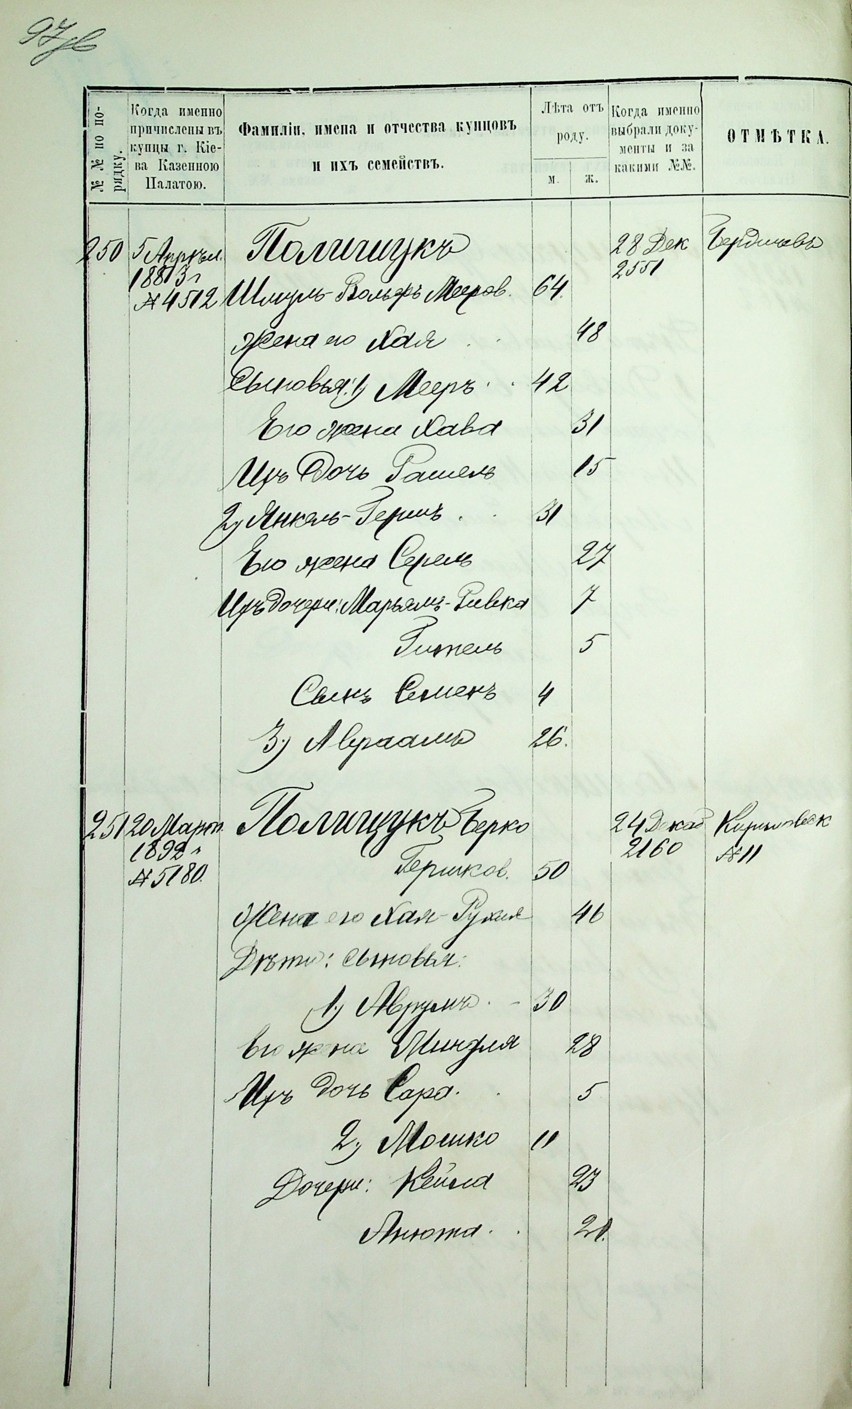 97
№ № по порядку.
Когда именно причислены въ купцы г. Кіева Казенною Палатою.
Фамиліи, имена и отчества купцовъ и ихъ семействъ.
Лѣта отъ роду.
м.
ж.
Когда именно выбрали документы и за какими №№.
ОТМѢТКА.
250 5 Апрѣл. Полищукъ 28 Дек Бердичевъ
1883 г 2551
№ 4512 Шмуль-Вольфъ Мееров. 64.
Жена его Хая 48
Сыновья: 1) Мееръ 42
Его жена Хава 31
Ихъ дочь Рашель 15
2) Янкель-Гершъ 31
Его жена Серель 27
Ихъ дочери: Марьямъ-Ривка 7
Гитель 5
Сынъ Семенъ 4
3) Авраамъ 26.
251 20 Март Полищукъ Берко 24 Декаб
1892 г Гершков. 50 2160 № 11
№ 5180.
Жена его Хая-Рухля 46
Дѣти: сыновья:
1) Аврумъ 30
Его жена Миндля 28
Ихъ дочь Сара. 5
2) Мошко 11
Дочери: Кейла 23
Анюта 21.